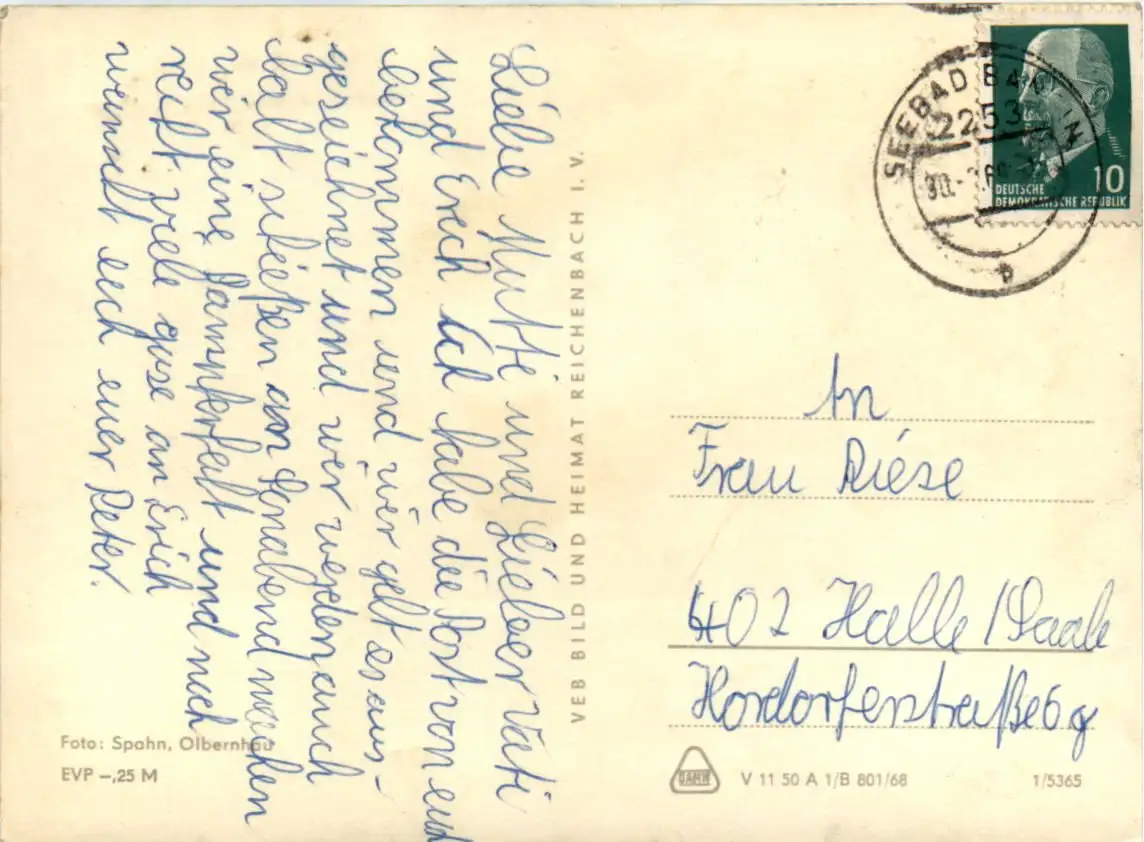 Liebe Mutti und Lieber Vati
und Erich Ich habe die Post von euch
bekommen und wir gelt es aus-
geseichnet und wir werden auch
balt schießen am Sonabend machen
wir eine Dampferfalt und noch
recht viele grüse an Erich
wünscht euch euer Peter.
Foto: Spahn, Olbernhau
EVP –,25 M
VEB BILD UND HEIMAT REICHENBACH I. V.
SEEBAD BANSIN
2253
DEUTSCHE
DEMOKRATISCHE REPUBLIK
10
An
Frau Riese
402 Halle/Saale
Hordorferstraße 6g
DAMW
V 11 50 A 1/B 801/68
1/5365